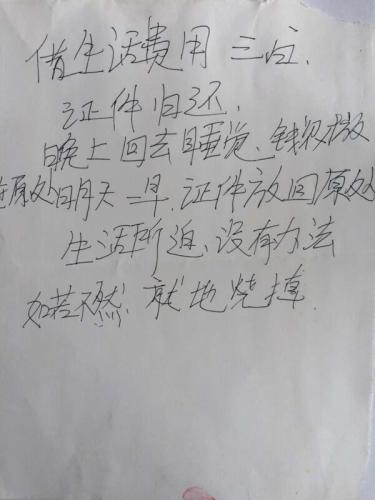 借生活费用 三
证件归还.
晚上回去睡觉、钱放
在原处明天一早.证件放回原处
生活所迫、没有办法
如若不然、就地烧掉.